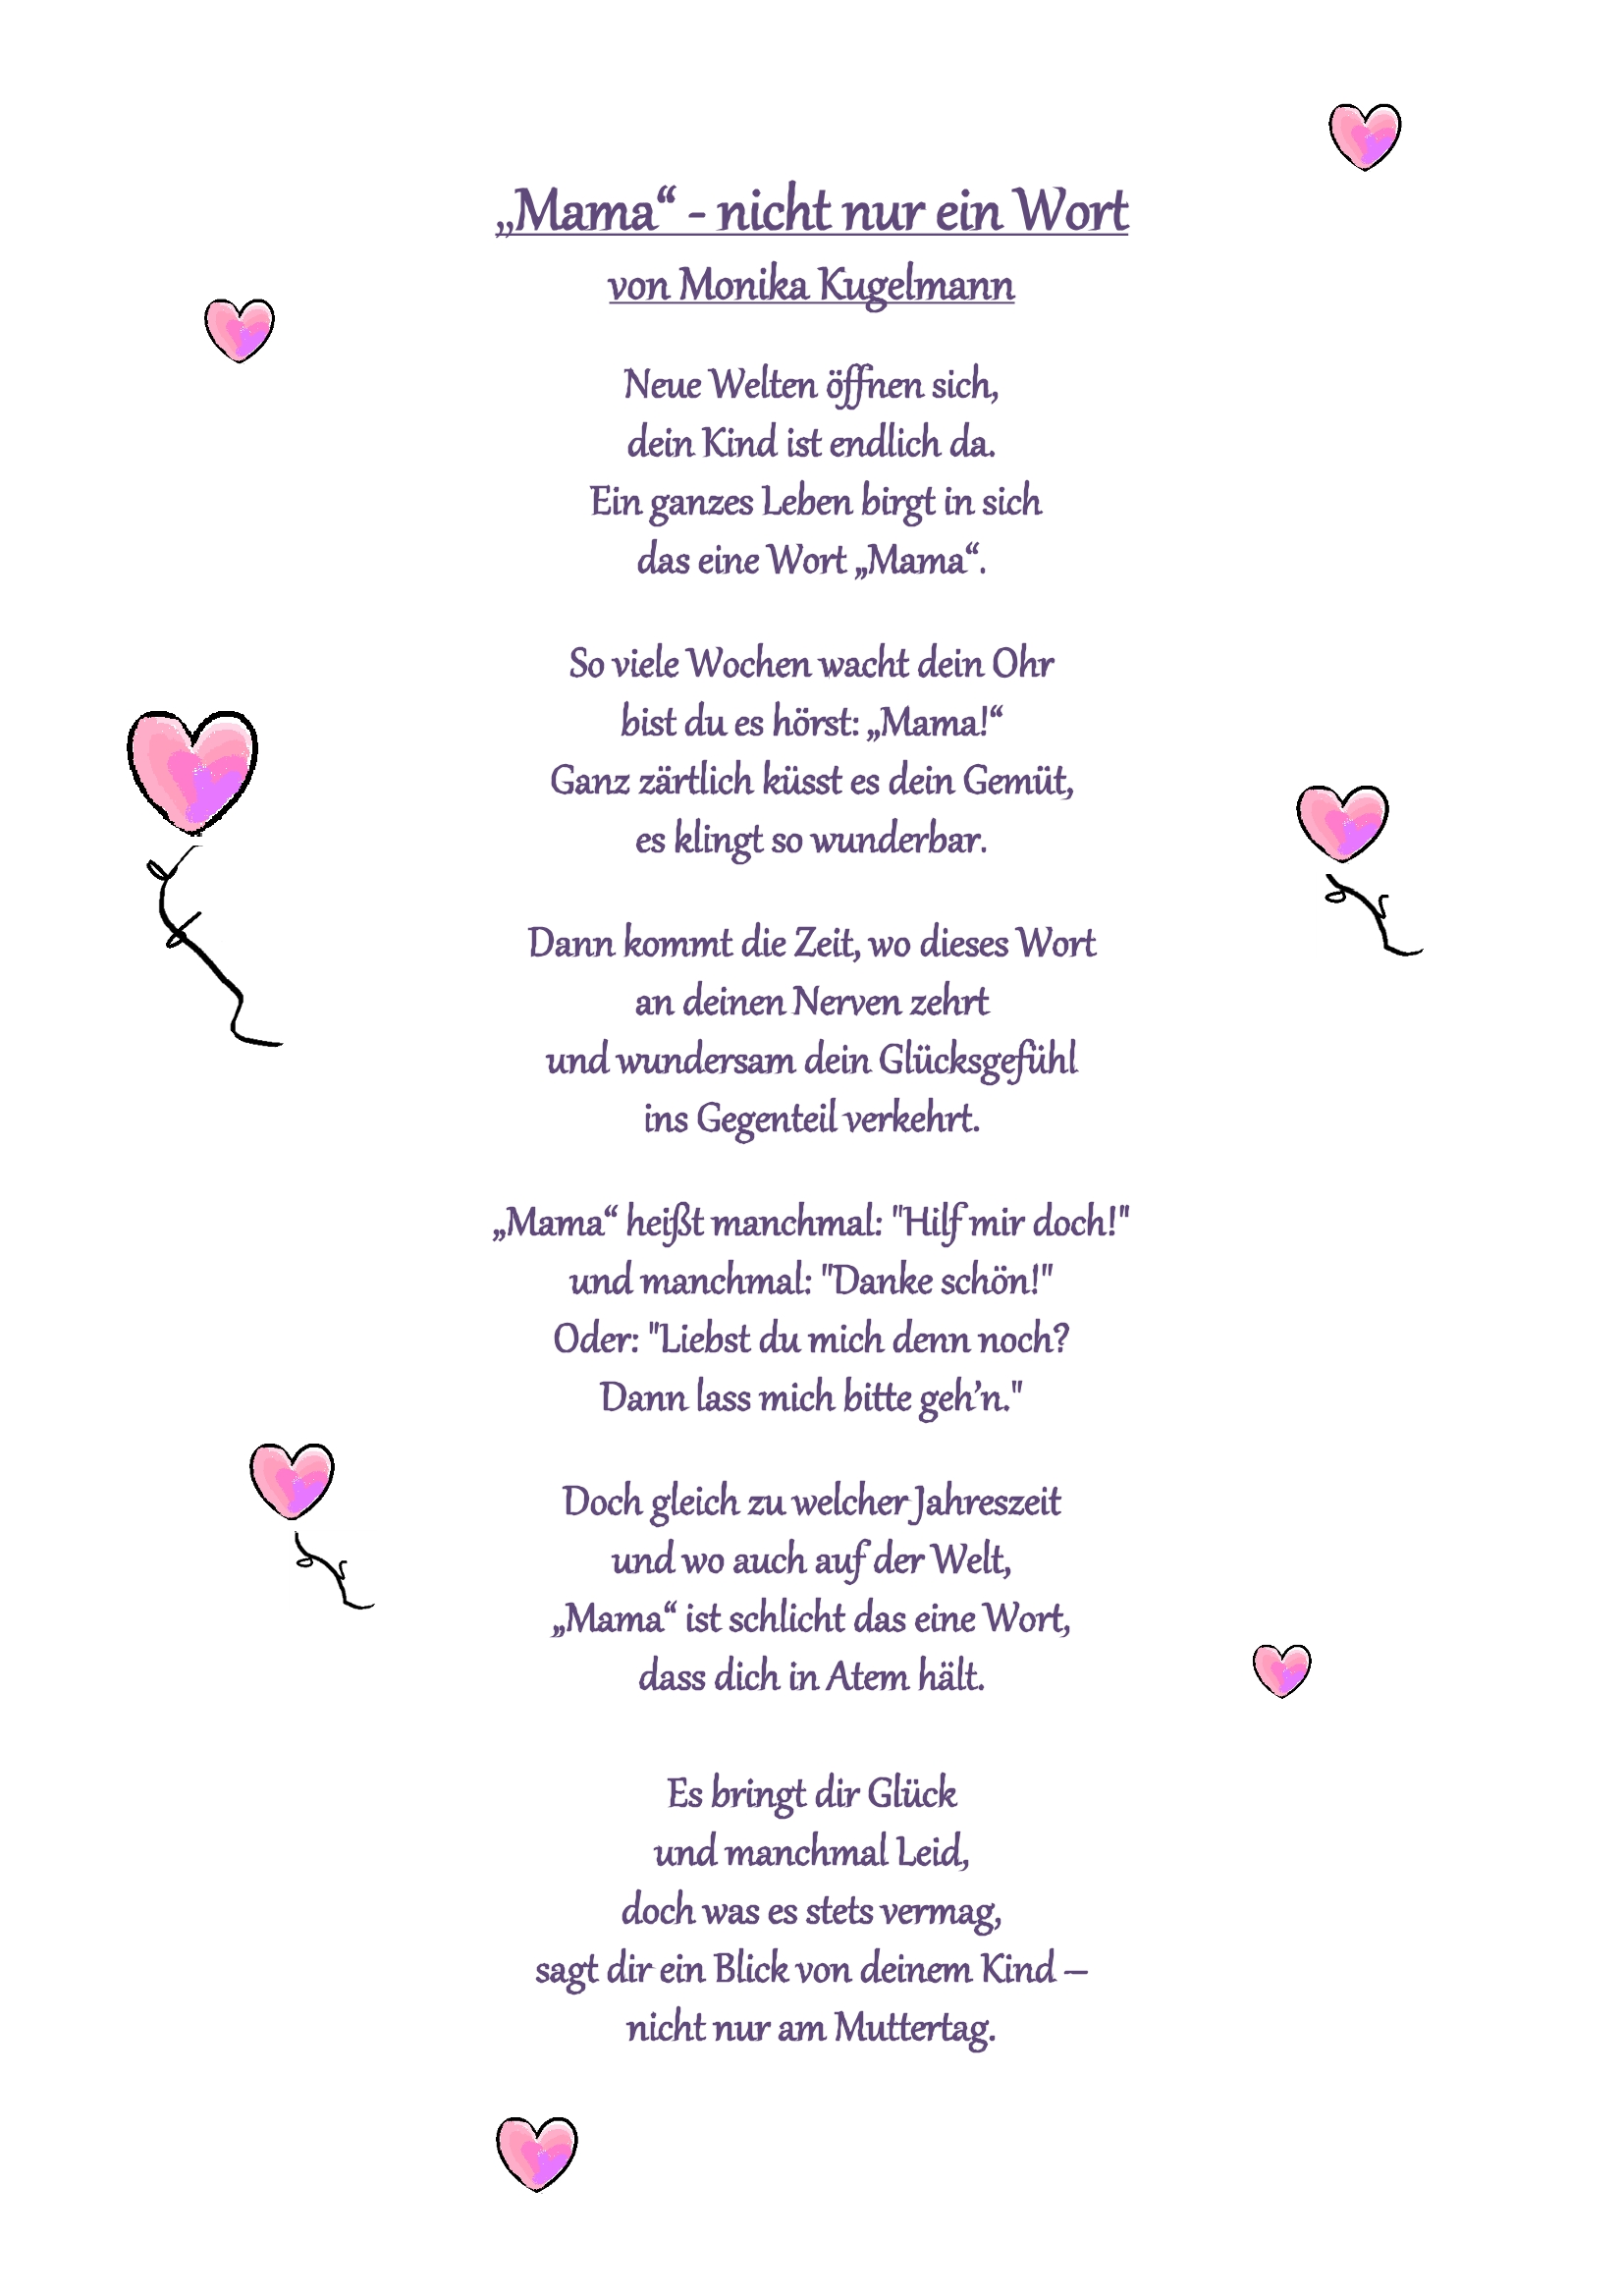 „Mama“ - nicht nur ein Wort
von Monika Kugelmann
Neue Welten öffnen sich,
dein Kind ist endlich da.
Ein ganzes Leben birgt in sich
das eine Wort „Mama“.
So viele Wochen wacht dein Ohr
bist du es hörst: „Mama!“
Ganz zärtlich küsst es dein Gemüt,
es klingt so wunderbar.
Dann kommt die Zeit, wo dieses Wort
an deinen Nerven zehrt
und wundersam dein Glücksgefühl
ins Gegenteil verkehrt.
„Mama“ heißt manchmal: "Hilf mir doch!"
und manchmal: "Danke schön!"
Oder: "Liebst du mich denn noch?
Dann lass mich bitte geh’n."
Doch gleich zu welcher Jahreszeit
und wo auch auf der Welt,
„Mama“ ist schlicht das eine Wort,
dass dich in Atem hält.
Es bringt dir Glück
und manchmal Leid,
doch was es stets vermag,
sagt dir ein Blick von deinem Kind –
nicht nur am Muttertag.